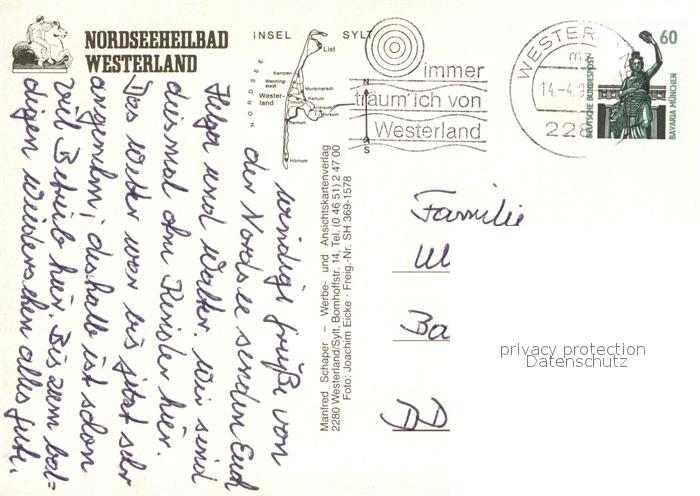 NORDSEEHEILBAD
WESTERLAND
INSEL SYLT
List
NORDSEE
Kampen
Wenning-
stedt
Munkmarsch
Wester-
land
Keitum
Rantum
Hörnum
N
S
immer
träum' ich von
Westerland
WESTER
14.-4.9
228
60
DEUTSCHE BUNDESPOST
BAVARIA MÜNCHEN
windige Grüße von
der Nordsee senden Euch
Helga und Walter. Wir sind
diesmal ohne Kinder hier.
Das Wetter war bis jetzt sehr
angenehm; deshalb ist schon
viel Betrieb hier. Bis zum bal=
digen Wiedersehen alles Gute.
Manfred Schaper – Werbe- und Ansichtskartenverlag
2280 Westerland/Sylt, Bomhoffstr. 14, Tel. (0 46 51) 2 47 00
Foto: Joachim Eicke · Freig.-Nr. SH 369-1578
Familie
Ba
privacy protection
Datenschutz